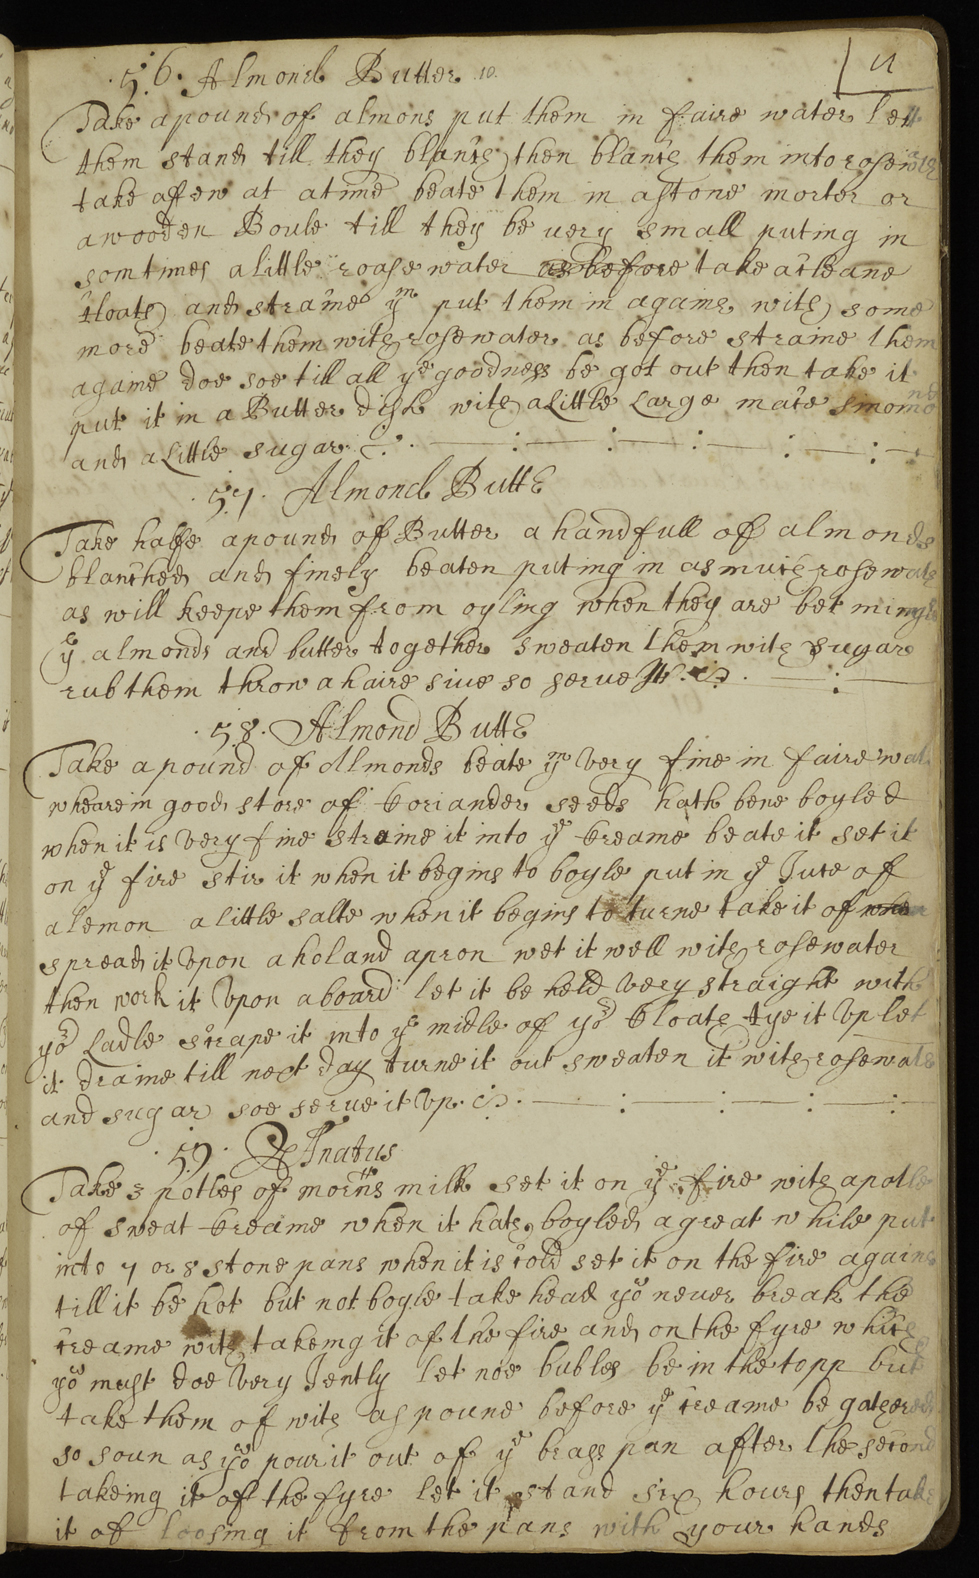 56. Almond Butter 10. 11
Take a pound of almons put them in faire water lett
them stand till they blanch then blanch them into rosewater
take a few at a time beate them in a stone morter or
a wooden Boule till they be very small puting in
somtimes a little roase water as before take a cleane
cloath and straine ym put them in againe with some
more beate them with rosewater as before straine them
againe doe soe till all ye goodness be got out then take it
put it in a Butter dish with a Little Large mace sinomond
and a Little sugar
57. Almond Butte
Take halfe a pound of Butter a handfull of almonds
blanched and finely beaten puting in as much rosewate
as will keepe them from oyling when they are bet mingle
ye almonds and butter together sweaten them with sugar
rub them throw a haire sive so serve it
58. Almond Butte
Take a pound of Almonds beate ym very fine in faire wat
whearein good store of Coriander seeds hath bene boyled
when it is very fine straine it into ye Creame beate it set it
on ye fire stir it when it begins to boyle put in ye Juce of
a lemon a little salte when it begins to turne take it of when
spread it Vpon a holand apron wet it well with rosewater
then work it Vpon a board let it be held very straight with
yor Ladle scrape it into ye midle of yor Cloath tye it Vp let
it draine till next day turne it out sweaten it with rosewate
and sugar soe serve it Vp.
59. Tnatus
Take 3 potles of mornns milk set it on ye fire with a potle
of sweat Creame when it hath boyled a great while put
into 7 or 8 stone pans when it is cold set it on the fire againe
till it be hot but not boyle take head yo never break the
creame with takeing it of the fire and on the fyre which
yo must doe very Jently let noe bubles be in the topp but
take them of with a spoune before ye creame be gathered
so soun as yo pour it out of ye brass pan after the second
takeing it of the fyre let it stand six hours then take
it of loosing it from the pans with your hands